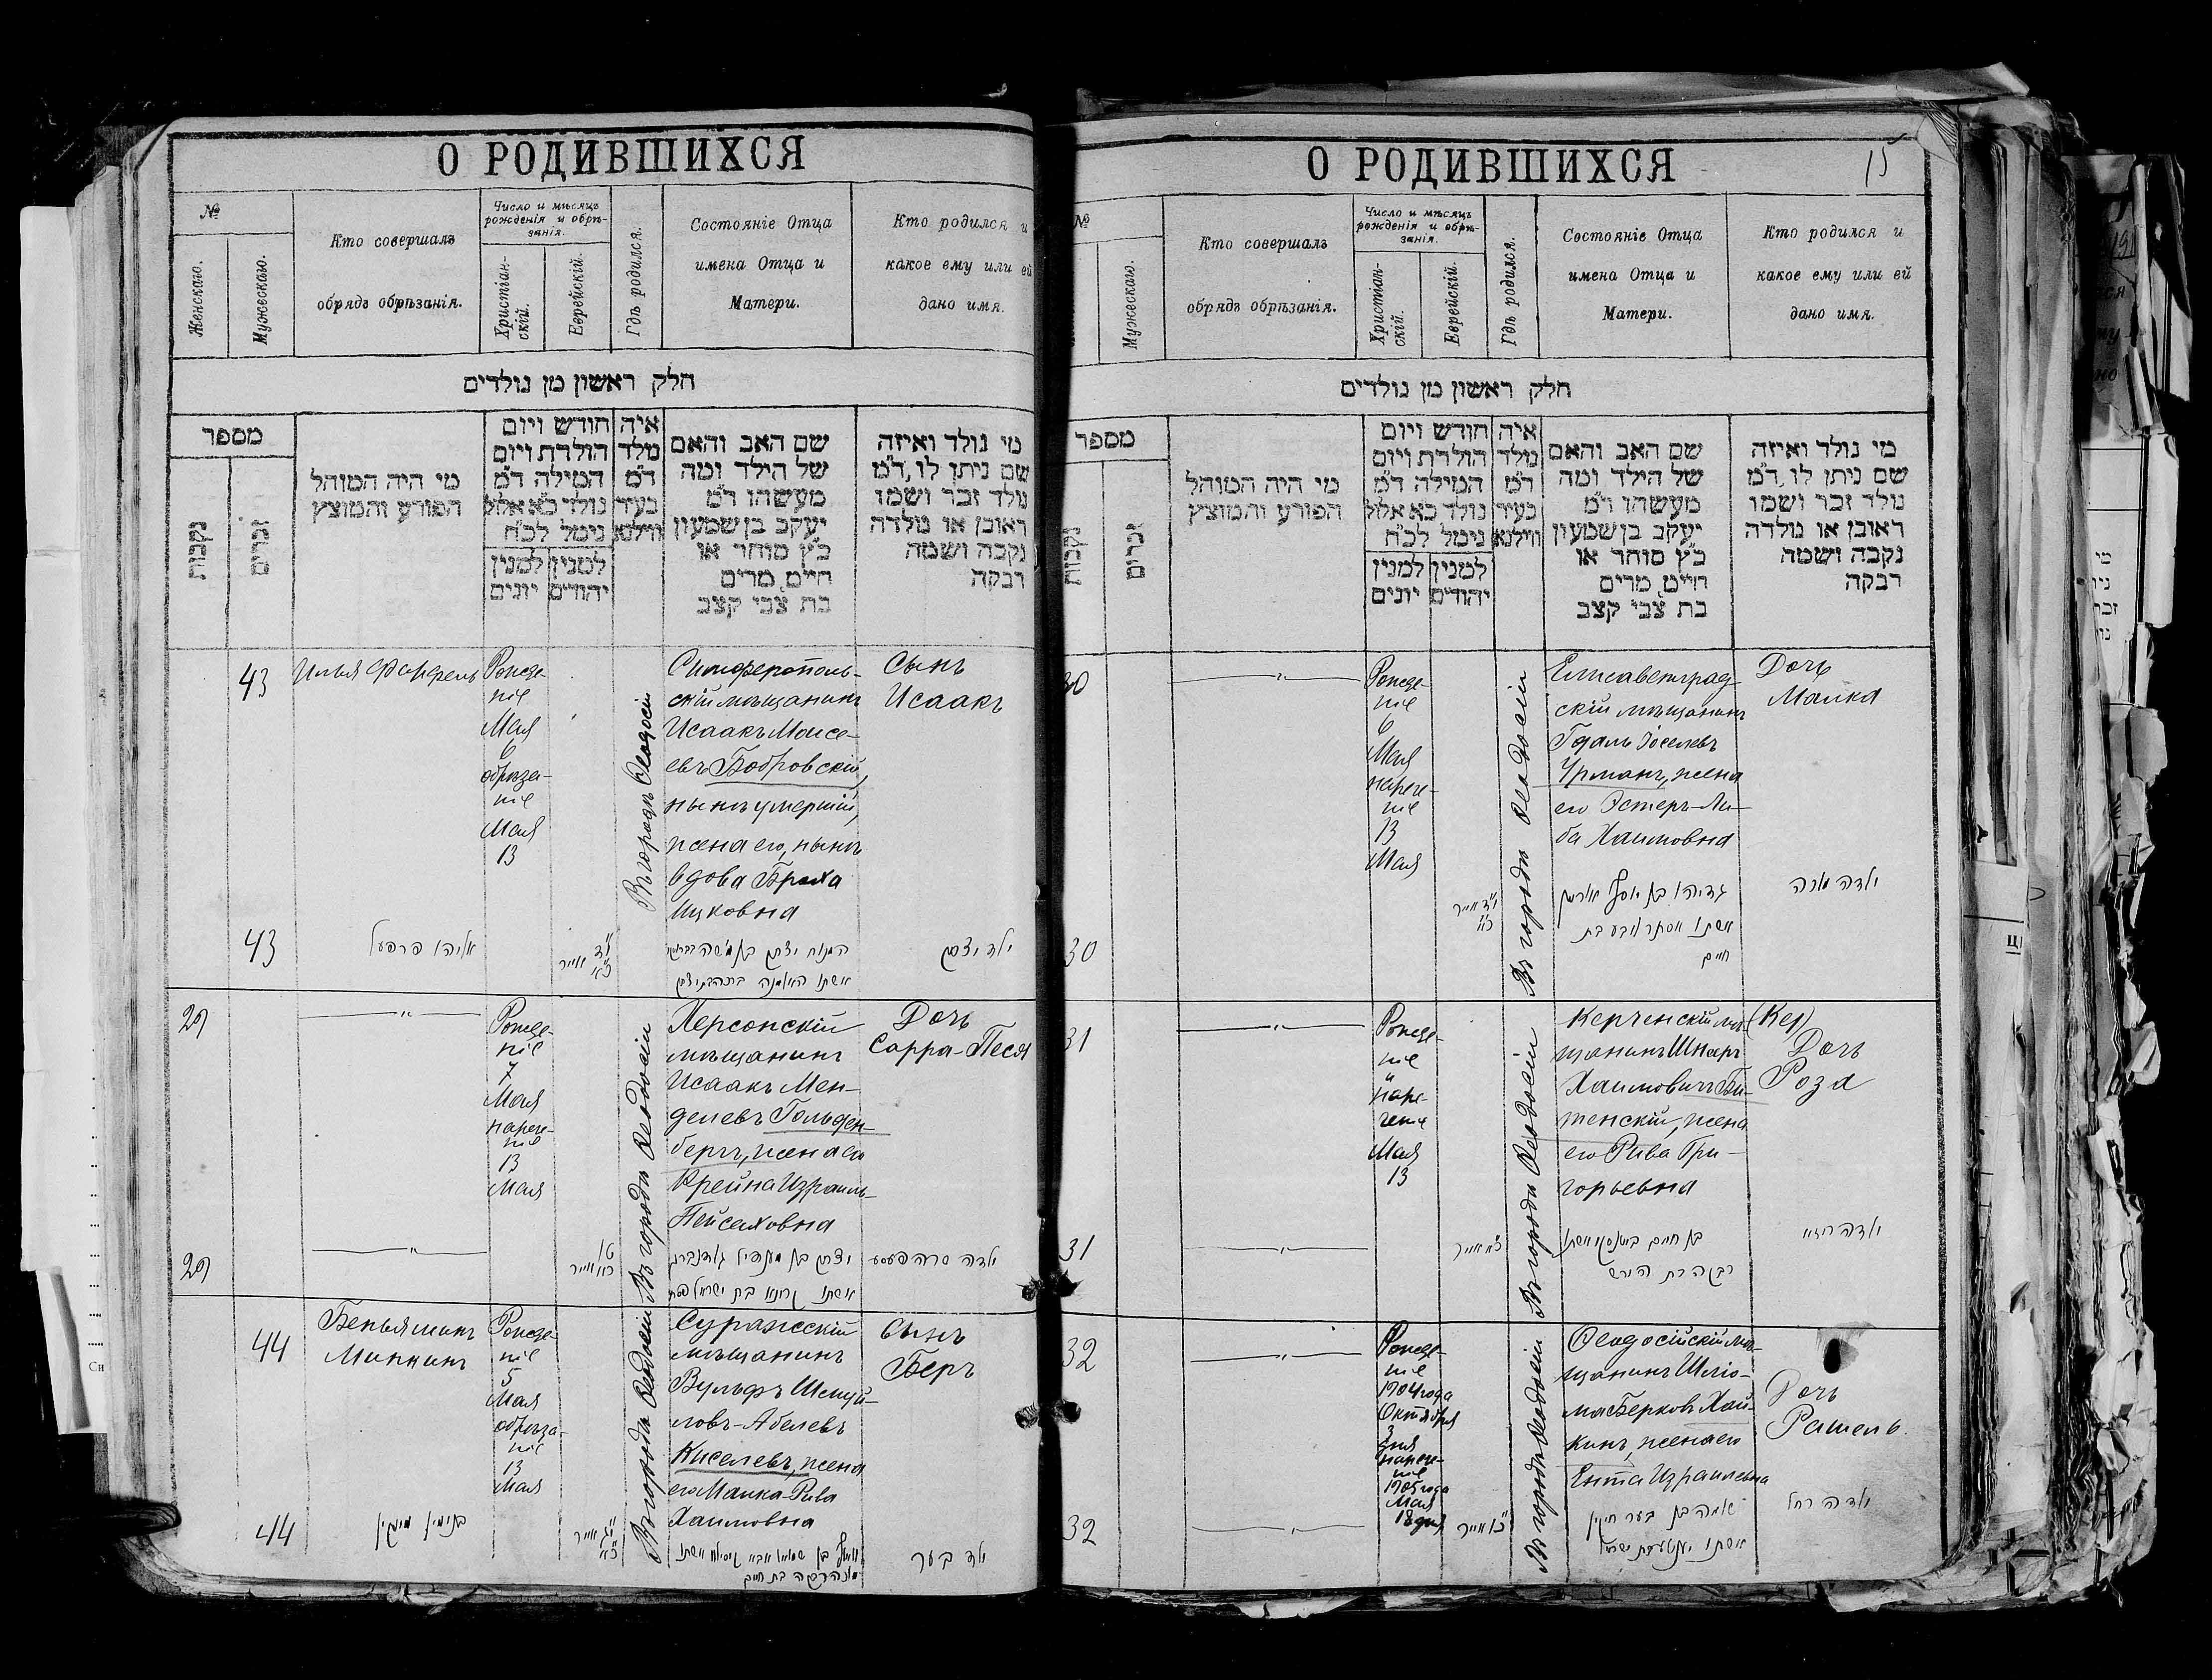 О РОДИВШИХСЯ
№
Женскаго.
Мужескаго.
Кто совершалъ
обрядъ обрѣзанія.
Число и мѣсяцъ
рожденія и обрѣ-
занія.
Христіан-
скій.
Еврейскій.
Гдѣ родился.
Состояніе Отца
имена Отца и
Матери.
Кто родился и
какое ему или ей
дано имя.
חלק ראשון מן נולדים
מספר
נקבות
זכרים
מי היה המוהל
הפורע והמוצץ
חודש ויום
הולדת ויום
המילה ד״מ
נולד כ״א אלול
נימל לכ״ח
למנין למנין
יהודים יונים
איה
מלד
ד״מ
בעיר
ווילנא
שם האב והאם
של הילד ומה
מעשהו ד״מ
יעקב בן שמעון
כ״ץ סוחר או
חייט מרים
בת צבי קצב
מי נולד ואיזה
שם ניתן לו ד״מ
נולד זכר ושמו
ראובן או נולדה
נקבה ושמה
רבקה
43
Илья Фанфель
Рожде-
ніе
Мая
6
обрѣза-
ніе
Мая
13
Въ городѣ Ѳеодосіи
Симферополь-
скій мѣщанинъ
Исаакъ Моисе-
евъ Бобровскій,
нынѣ умершій,
жена его, нынѣ
вдова Браха
Ицковна
Сынъ
Исаакъ
43
אייר
המנוח יצחק בן משה
אשתו
ילד יצחק
29
Рожде-
ніе
7
Мая
нарече-
ніе
13
Мая
Въ городѣ Ѳеодосіи
Херсонскій
мѣщанинъ
Исаакъ Мен-
делевъ Гольден-
бергъ, жена его
Крейна Израиль-
Пейсаховна
Дочь
Сарра-Песя
29
אייר
יצחק בן מענדיל גאלדנברג
אשתו קרוינא בת ישראל פסח
ילדה שרה פעסע
44
Беньяминъ
Минкинъ
Рожде-
ніе
5
Мая
обрѣза-
ніе
13
Мая
Въ городѣ Ѳеодосіи
Суражскій
мѣщанинъ
Вульфъ Шмуй-
ловъ-Абелевъ
Киселевъ, жена
его Малка-Рива
Хаимовна
Сынъ
Беръ
44
בנימין מינקין
אייר
אשתו
בת חיים
ילד בער
О РОДИВШИХСЯ
15
№
Мужескаго.
Кто совершалъ
обрядъ обрѣзанія.
Число и мѣсяцъ
рожденія и обрѣ-
занія.
Христіан-
скій.
Еврейскій.
Гдѣ родился.
Состояніе Отца
имена Отца и
Матери.
Кто родился и
какое ему или ей
дано имя.
חלק ראשון מן נולדים
מספר
נקבות
זכרים
מי היה המוהל
הפורע והמוצץ
חודש ויום
הולדת ויום
המילה ד״מ
נולד כ״א אלול
נימל לכ״ח
למנין למנין
יהודים יונים
איה
מלד
ד״מ
בעיר
ווילנא
שם האב והאם
של הילד ומה
מעשהו ד״מ
יעקב בן שמעון
כ״ץ סוחר או
חייט מרים
בת צבי קצב
מי נולד ואיזה
שם ניתן לו ד״מ
נולד זכר ושמו
ראובן או נולדה
נקבה ושמה
רבקה
30
Рожде-
ніе
6
Мая
нарече-
ніе
13
Мая
Въ городѣ Ѳеодосіи
Елисаветград-
скій мѣщанинъ
Гдаль Іоселевъ
Урманъ, жена
его Эстеръ-Ли-
ба Хаимовна
Дочь
Малка
30
אייר
גדליהו בן יוסף אורמן
אשתו אסתר ליבע בת
חיים
ילדה מלכה
31
Рожде-
ніе
и
наре-
ченіе
Мая
13
Въ городѣ Ѳеодосіи
Керченскій мѣ-
щанинъ Шнеръ
Хаимовичъ Би-
тенскій, жена
его Рива Гри-
горьевна
(Кер)
Дочь
Роза
31
אייר
בן חיים ביטנסקי אשתו
רבקה בת הירש
ילדה רוזא
32
Рожде-
ніе
1904 года
Октября
3
дня
нарече-
ніе
1905 года
Мая
18 дня
Въ городѣ Ѳеодосіи
Ѳеодосійскій мѣ-
щанинъ Шліо-
ма Берковъ Хай-
кинъ, жена его
Ента Израилевна
Дочь
Рашель.
32
אייר
שלמה בן בער חייקין
אשתו יענטע בת ישראל
ילדה רחל